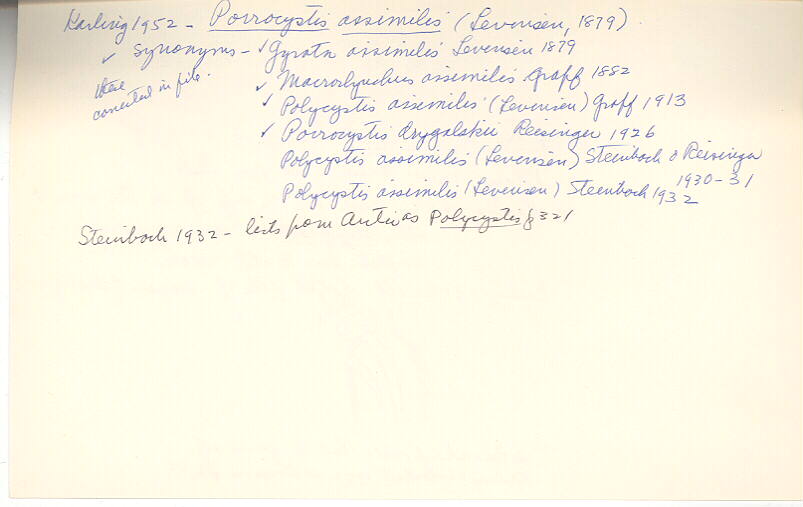 Karling 1952 - Porrocystis assimilis (Levensen, 1879)
✓ Synonyms - ✓ Gyrata assimilis Levensen 1879
these corrected in file.
✓ Macrorhynchus assimilis Graff 1882
✓ Polycystis assimilis (Levensen) Graff 1913
✓ Porrocystis drygalskii Reisinger 1926
Polycystis assimilis (Levensen) Steinbock & Reisinger 1930-31
Polycystis assimilis (Levensen) Steinbock 1932
Steinbock 1932 - lists from Arctic as Polycystis p 321